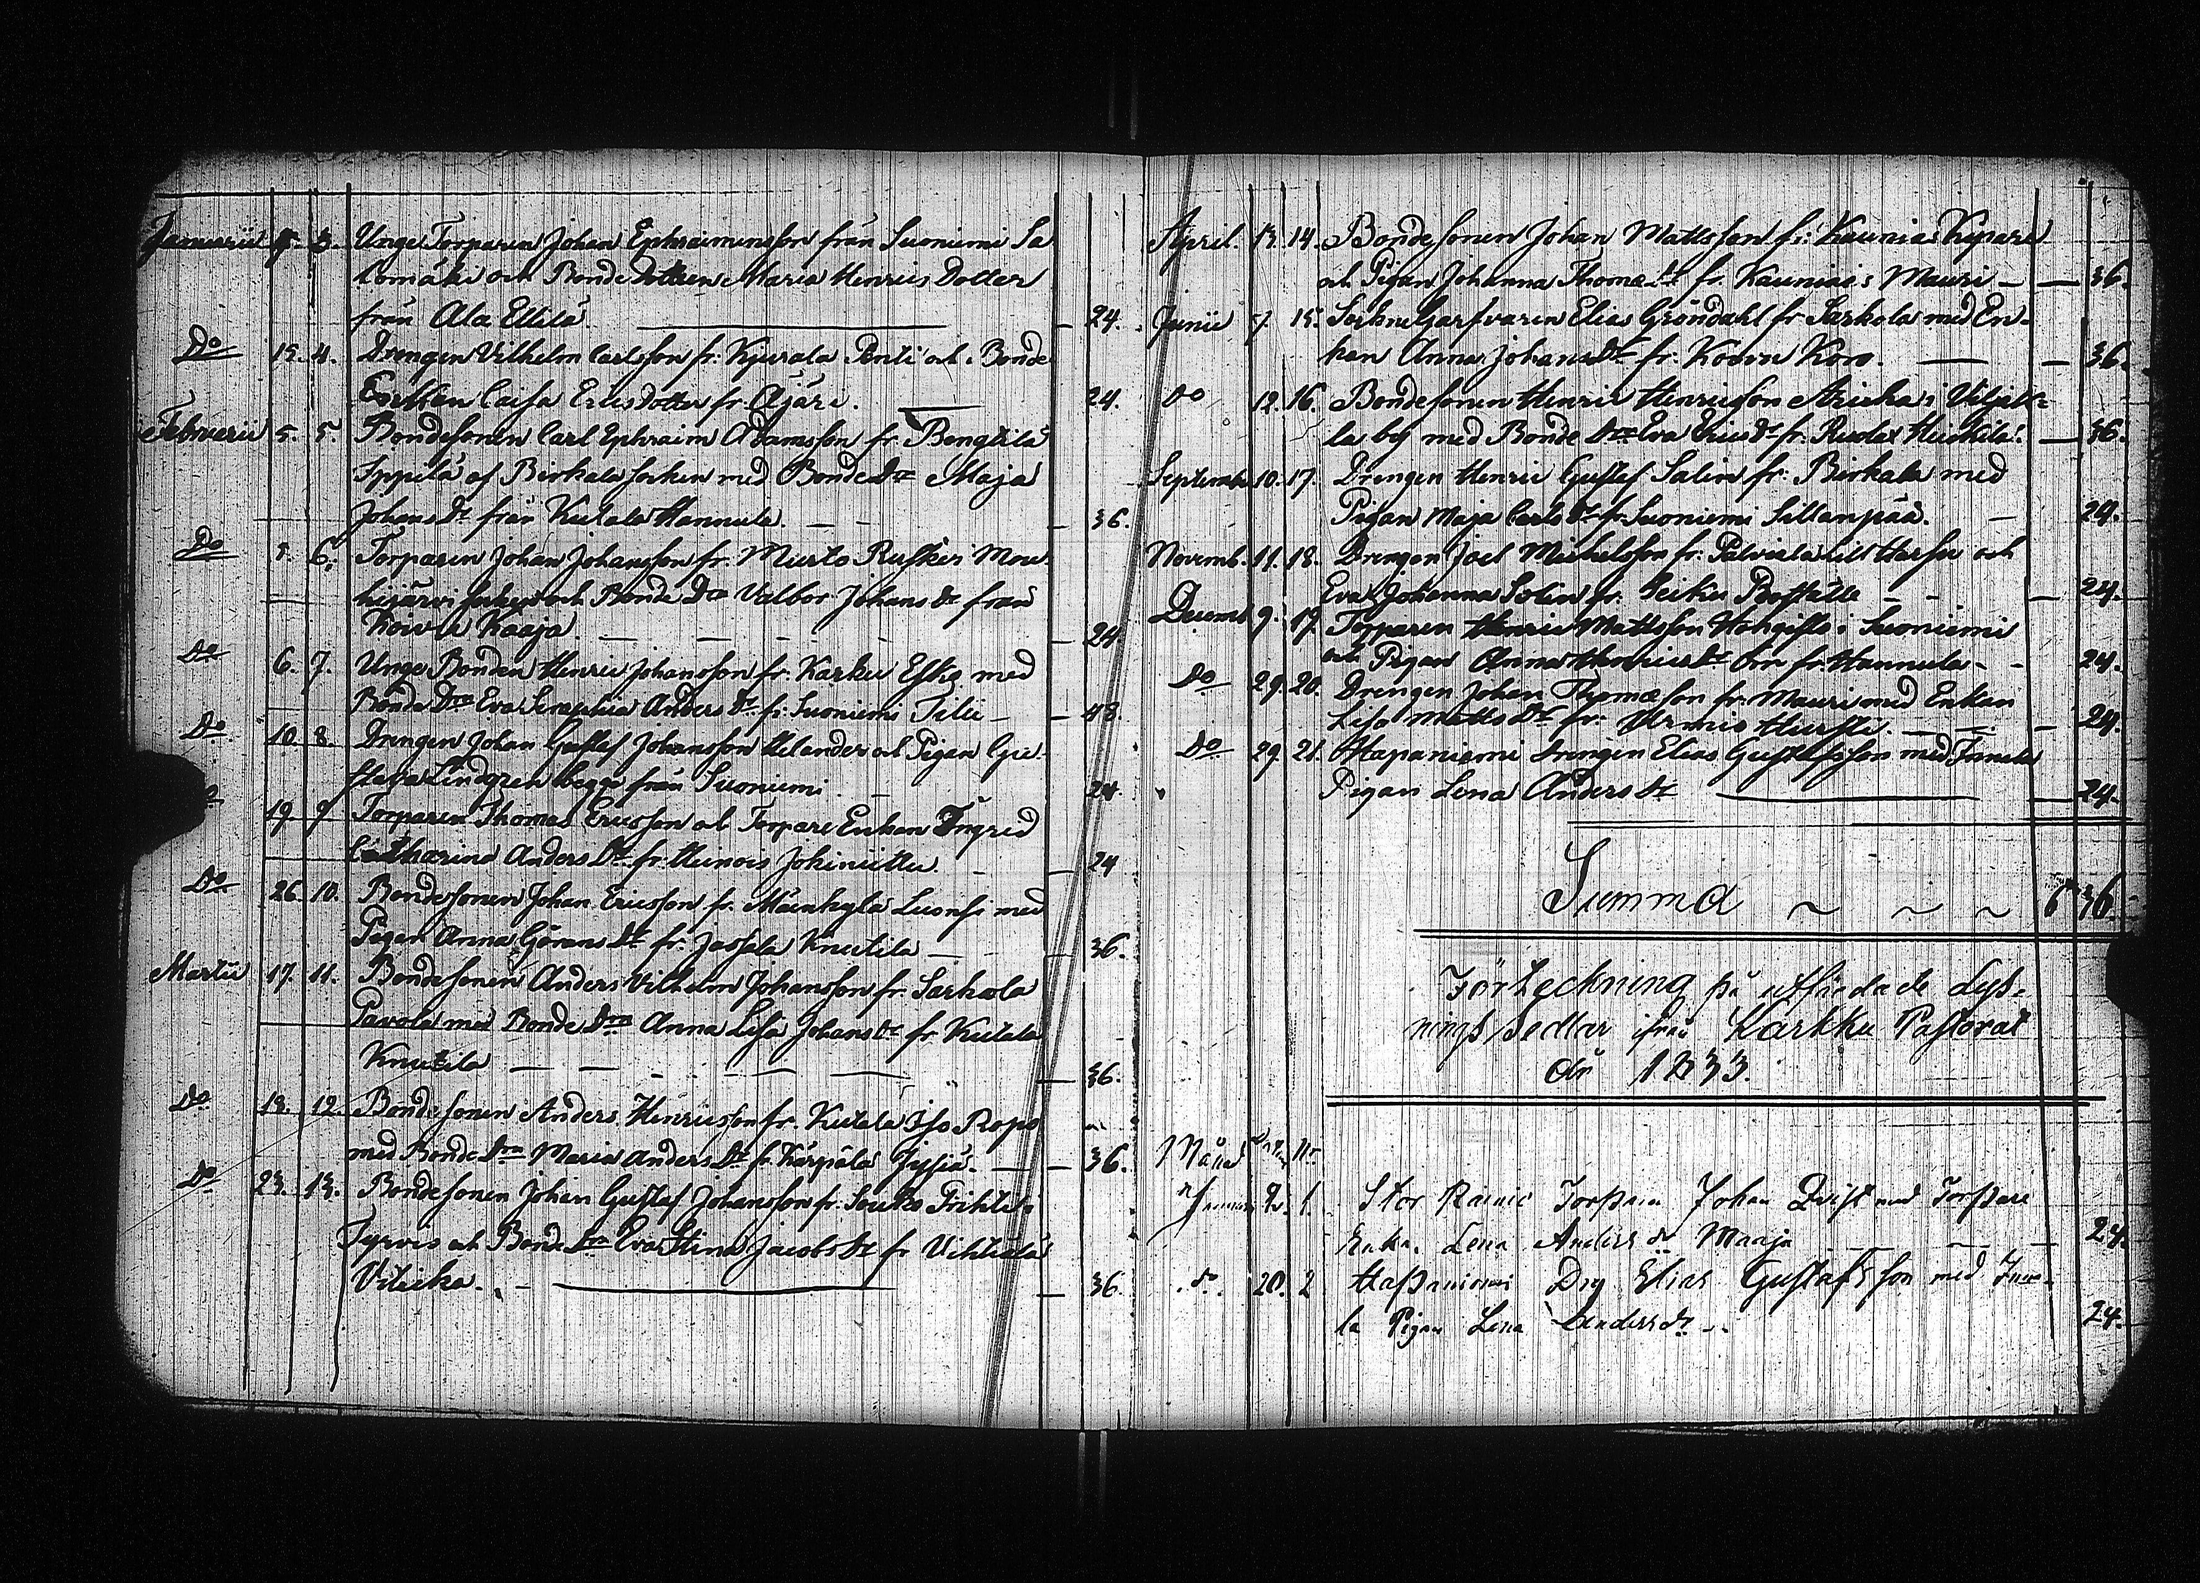 Januarii 8. 3. Unge Torparen Johan Ephraimsson från Suoniemi Sa
lomäki och Bonde Dottren Maria Henrics Dotter
från Ala Ellilä 24.
Do 15. 4. Drengen Vilhelm Carlsson fr. Kjurala Penti och Bonde
Dottren Caisa Erics dotter fr. Äjäri. 24.
Februarii 5. 5. Bondesonen Carl Ephraim Adamsson fr. Bengtilä
Sppilä af Birkala socken med Bonde Dtr Maja
Johans Dr från Kutala Hannula. 36.
Do 5. 6. Torparen Johan Johansson fr. Murto Ruskei Mou
hijärvi socken och Bonde Dtr Valbor Johans dr från
Koivu Kaaja. 24
Do 6. 7. Unge Bonden Henric Johansson fr. Karku Esko med
Bonde Dtr Eva Anders Dr fr. Suoniemi Tilii 48
Do 10. 8. Drengen Johan Gustaf Johansson Helander och Pigan Gu
stava Lindgren begge från Suoniemi 24.
19. 9 Torparen Thomas Ericsson och Torpare Enkan Ingrid
Catharina Anders Dr fr. Heinois Jokiniittu. 24
Do 26. 10. Bondesonen Johan Ericsson fr. Mäenkylä Luonsi med
Pigan Anna Görans Dr fr. Jassala Knutila 36.
Martii 17. 11. Bondesonen Anders Vilhelm Johansson fr. Sarkola
Pavola med Bonde Dtr Anna Lisa Johans Dr fr. Kutala
Knutila 36.
Do 19. 12. Bondesonen Anders Henricsson fr. Kutala Iso Ropo
med Bonde Dtr Maria Anders Dr fr. Kärpälä Jyssiä. 36.
Do 23. 13. Bondesonen Johan Gustaf Johansson fr. Souko Frihti i
Tyrvis och Bonde Dtr Eva Stina Jacobs dr fr Vihtiälä
Vilicka. 36
April. 13. 14. Bondesonen Johan Mattsson fr: Kauniais Kipari
och Pigan Johanna Thomæ Dr fr. Kauniais Mauri 36.
Junii 7. 15. Sockne Garfvaren Elias Gröndahl fr Sarkola med En-
kan Anna Johans Dr fr. Kodin Koro. 36.
Do 12. 16. Bondesonen Henric Henricsson i Viljak-
la by med Bonde Dtr Eva Erics Dr fr. Heickilä. 36.
September 10. 17. Drengen Henric Gustaf Salin fr. Birkala med
Pigan Maja Carls Dr fr. Suoniemi Sillanpää. 24.
Novemb. 11. 18. Drengen Joel Michelsson fr. Palviala och
Eva Johanna Solin fr. Heiku Boställe 24.
Decemb 9. 19. Torparen Henric Mattsson i Suoniemi
och Pigan Anna Henrics Dr fr. Hannula 24.
Do 29. 20. Drengen Johan Thomæson fr. Mauri med Enkan
Lisa Matts Dr fr. 24.
Do 29. 21. Hapaniemi Drengen Elias Gustafsson med
Pigan Lena Anders Dr 24.
Summa 6 36
Förteckning på utfärdade Lys-
nings sedlar ifrån Karkku Pastorat
år 1833.
Månad Nr
2. 1. Stor Rainio Torparen Johan Qvist med Torpare
Enka. Lena Anders dr Maaja 24.
do. 20. 2 Hapaniemi Drg Elias Gustafsson med
la Pigan Lena Anders dr 24.